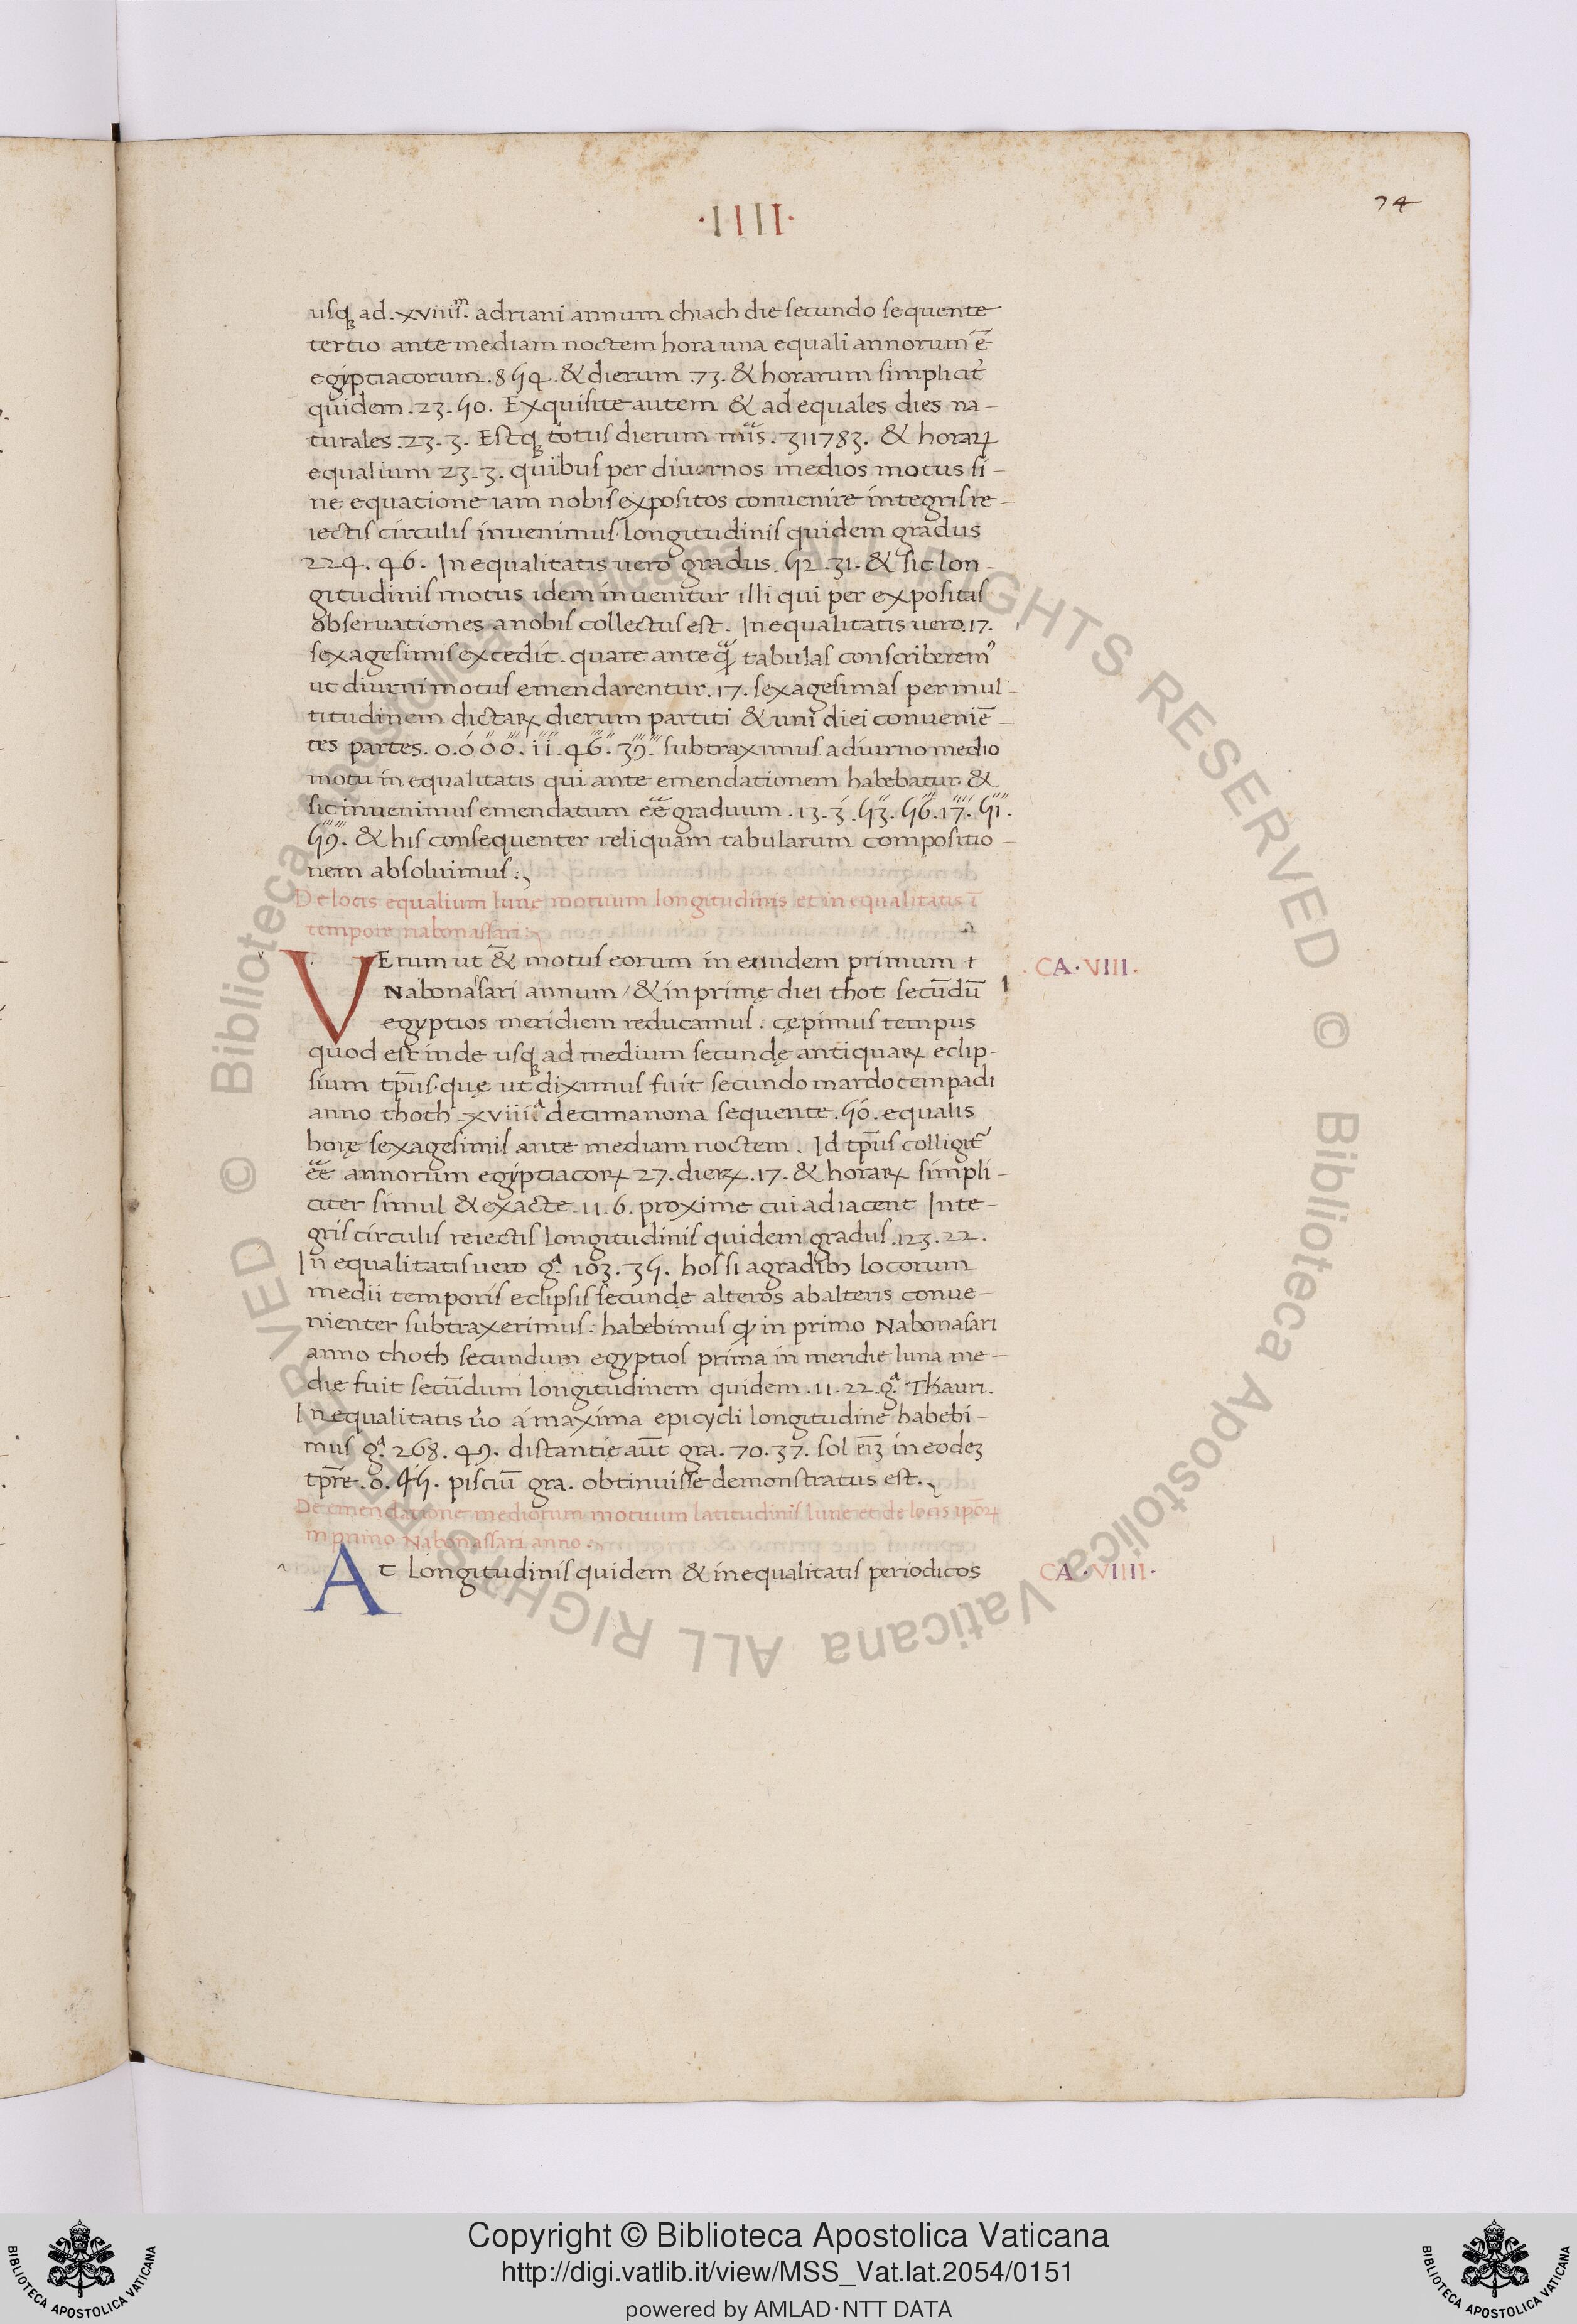 ·IIII·
74
usqꝫ ad .xviiii.ᵐ adriani annum chiach die secundo sequente
tertio ante mediam noctem hora una equali annorum ē
egiptiacorum .854. & dierum .73. & horarum simplicit᷑
quidem .23.50. Exquisite autem & ad equales dies na-
turales .23.3. Estqꝫ totus dierum 311783. & horaꝝ
equalium 23.3. quibus per diurnos medios motus si-
ne equatione iam nobis expositos convenire integris re-
iectis circulis invenimus longitudinis quidem gradus
224.46. Inequalitatis vero gradus .52.31. & sic lon-
gitudinis motus idem invenitur illi qui per expositas
observationes a nobis collectus est. Inequalitatis vero .17.
sexagesimis excedit. quare ante tabulas conscriberemꝰ
ut diurni motus emendarentur .17. sexagesimas per mul-
titudinem dictaꝝ dierum partiti & uni diei conveniē-
tes partes. 0.0 0 0. 11. 46. 39. subtraximus a diurno medio
motu inequalitatis qui ante emendationem habebatur &
sic invenimus emendatum graduum .13.3.53.56.17.51.
59. & his consequenter reliquam tabularum compositio-
nem absolvimus.
De locis equalium lunę motuum longitudinis et inequalitatis ī
tempore nabonassari
VErum ut & motus eorum in eundem primum
CA·VIII·
Nabonasari annum / & in prime diei thot secūdū
egyptios meridiem reducamus: cępimus tempus
quod est inde usqꝫ ad medium secundę antiquaꝝ eclip-
sium tp̄us. quę ut diximus fuit secundo mardocempadi
anno thoth .xviii decimanona sequente .50. equalis
horę sexagesimis ante mediam noctem. Id tp̄us colligit᷑
annorum egiptiacoꝝ 27. dieꝝ .17. & horaꝝ simpli-
citer simul & exacte .11.6. proxime cui adiacent Inte-
gris circulis reiectis longitudinis quidem gradus .123.22.
Inequalitatis vero gᵃ. 103.35. hos si a gradibꝫ locorum
medii temporis eclipsis secundę alteros ab alteris conve-
nienter subtraxerimus: habebimus ꝙ in primo Nabonasari
anno thoth secundum egyptios prima in meridie luna me-
die fuit secūdum longitudinem quidem .11.22. gᵃ Thauri.
Inequalitatis ṽo á maxima epicycli longitudine habebi-
mus gᵃ. 268.49. distantię aūt gra. 70.37. sol eīꝫ in eodeꝫ
tp̄re .0.45. pisciū gra. obtinuisse demonstratus est.
De emendatione mediorum motuum latitudinis lune et de locis ip̄oꝝ
in primo Nabonassari anno.
At longitudinis quidem & inequalitatis periodicos
CA·VIIII·
© Biblioteca Apostolica Vaticana ALL RIGHTS RESERVED © Biblioteca Apostolica Vaticana ALL RIGHTS RESERVED
Copyright © Biblioteca Apostolica Vaticana
http://digi.vatlib.it/view/MSS_Vat.lat.2054/0151
powered by AMLAD·NTT DATA
BIBLIOTECA APOSTOLICA VATICANA
BIBLIOTECA APOSTOLICA VATICANA